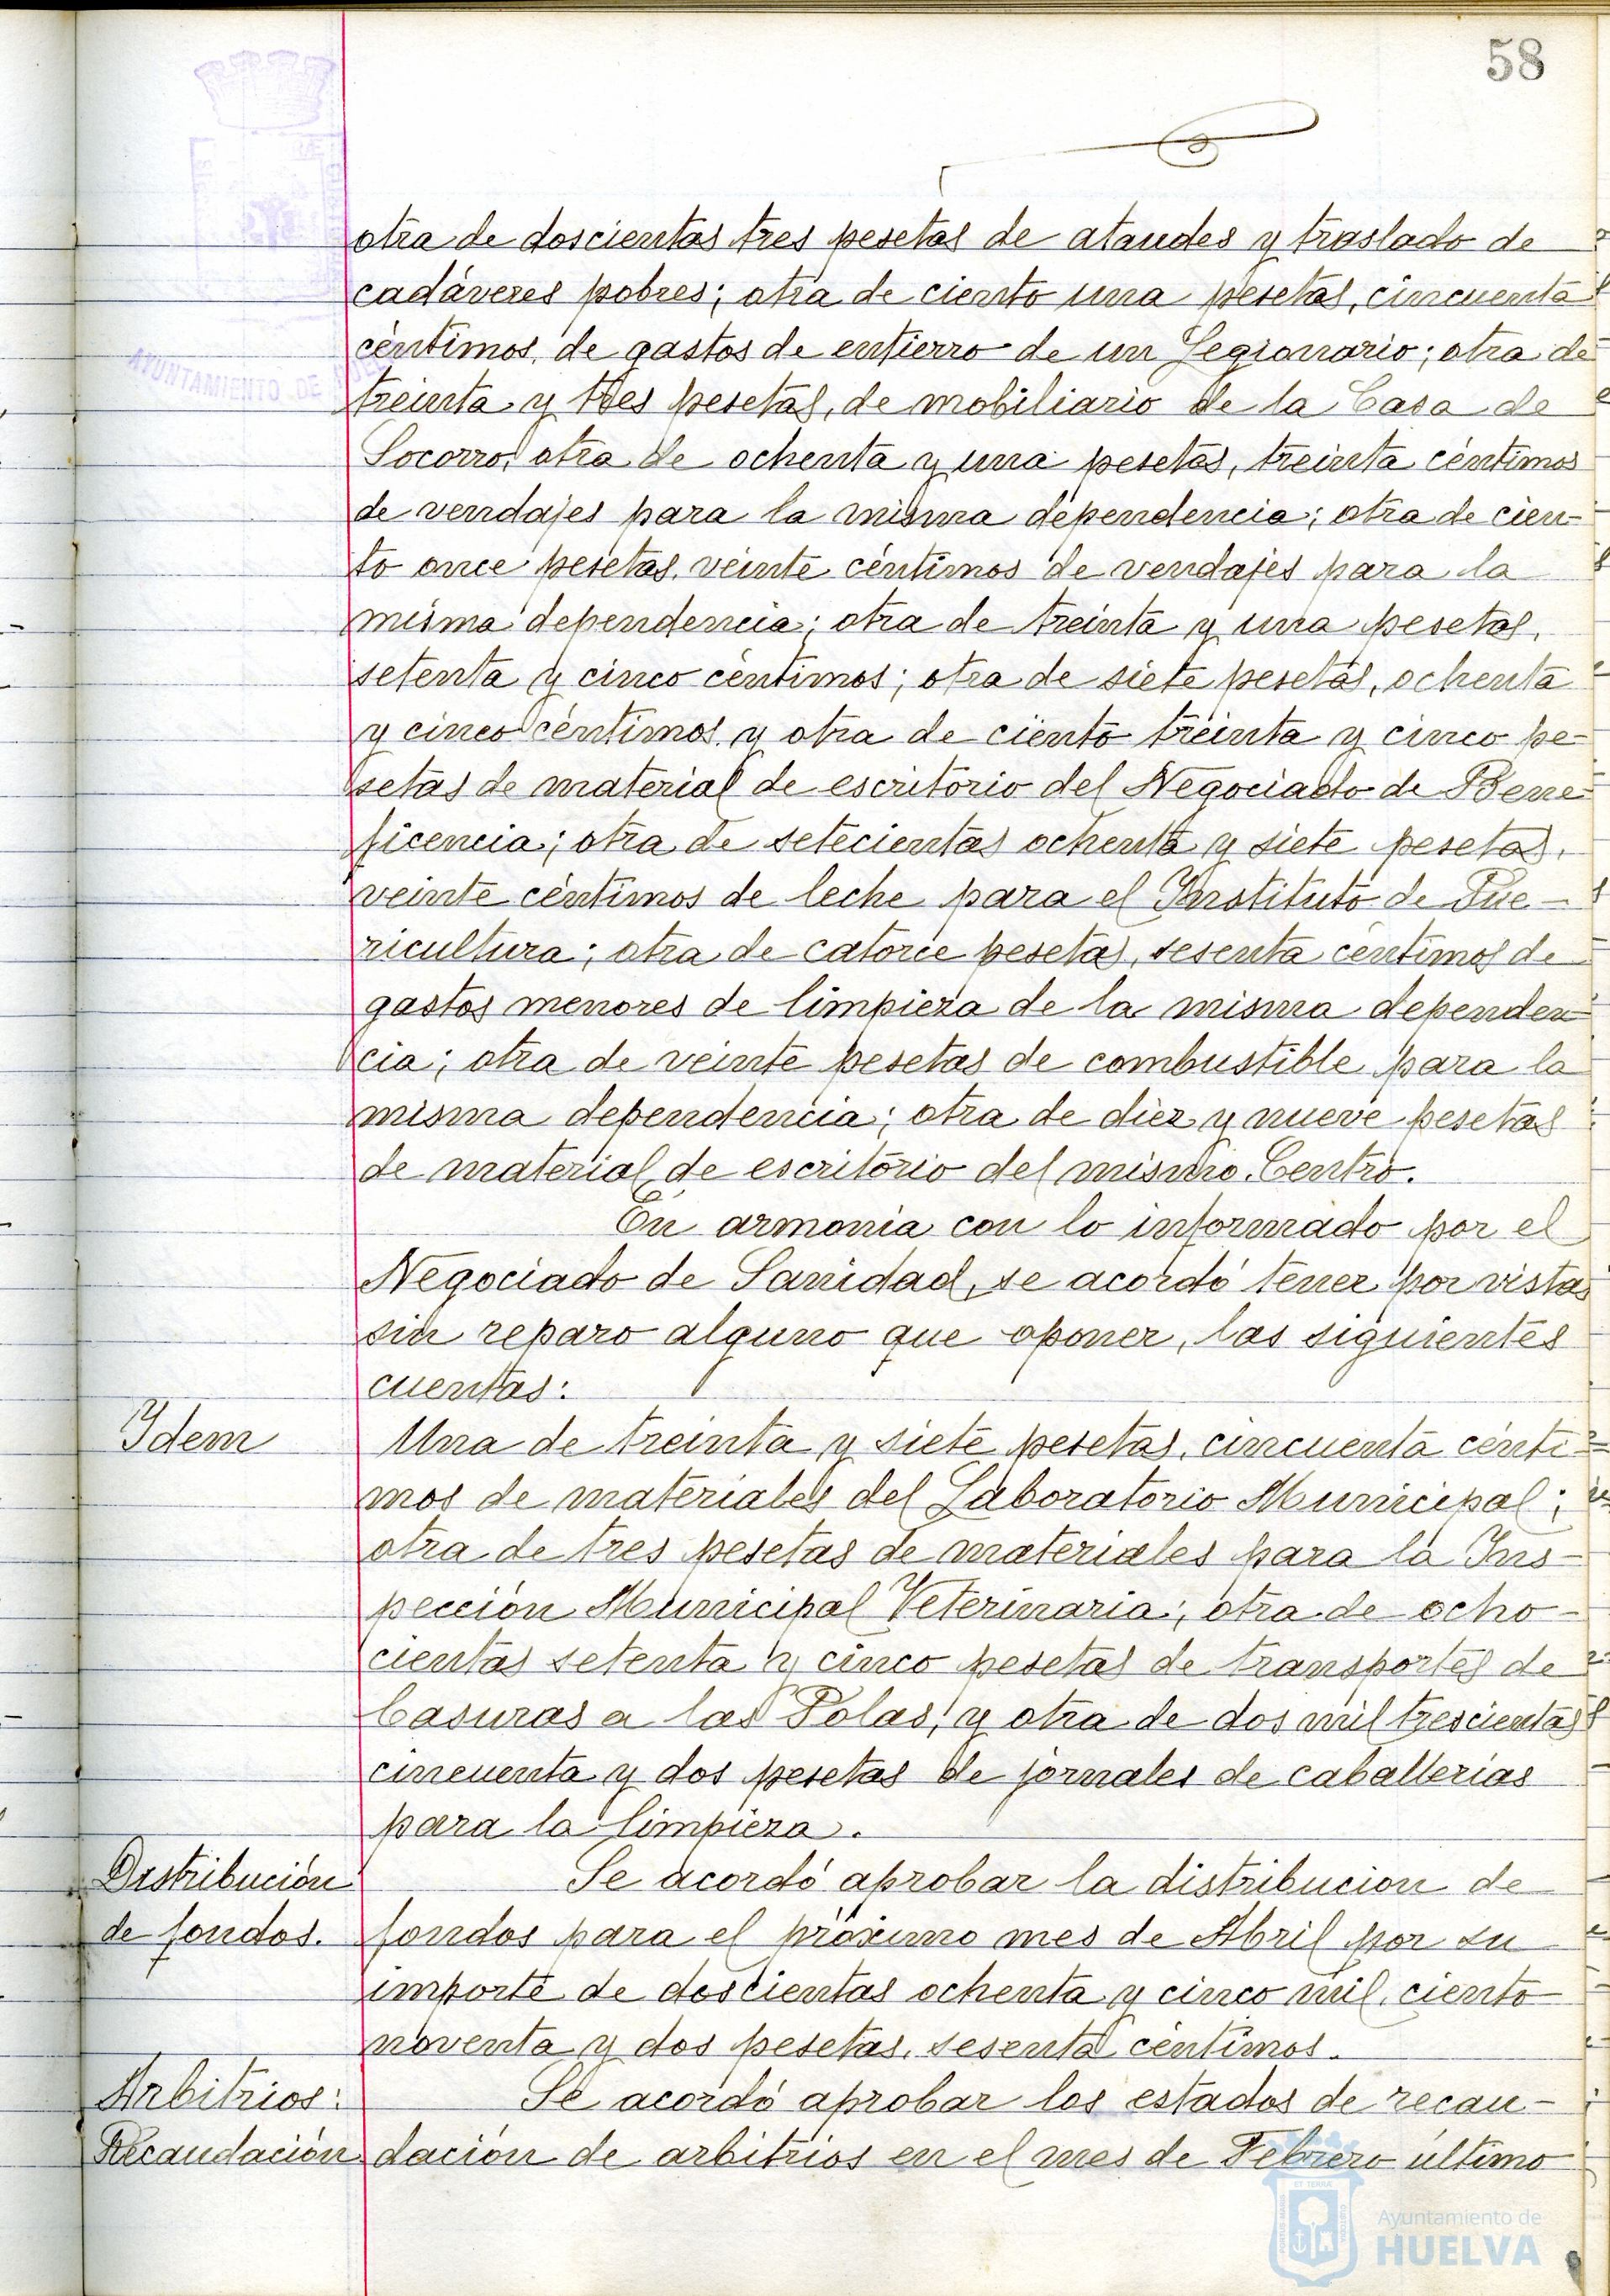 58
otra de doscientas tres pesetas de ataudes y traslado de
cadáveres pobres; otra de ciento una pesetas, cincuenta
céntimos, de gastos de entierro de un Legionario; otra de
treinta y tres pesetas, de mobiliario de la Casa de
Socorro; otra de ochenta y una pesetas, treinta céntimos
de vendajes para la misma dependencia; otra de cien-
to once pesetas, veinte céntimos de vendajes para la
misma dependencia; otra de treinta y una pesetas,
setenta y cinco céntimos; otra de siete pesetas, ochenta
y cinco céntimos y otra de ciento treinta y cinco pe-
setas de material de escritorio del Negociado de Bene-
ficencia; otra de setecientas ochenta y siete pesetas,
veinte céntimos de leche para el Instituto de Pue-
ricultura; otra de catorce pesetas, sesenta céntimos de
gastos menores de limpieza de la misma dependen-
cia; otra de veinte pesetas de combustible para la
misma dependencia; otra de diez y nueve pesetas
de material de escritorio del mismo Centro.
En armonia con lo informado por el
Negociado de Sanidad, se acordó tener por vistas
sin reparo alguno que oponer, las siguientes
cuentas:
Idem
Una de treinta y siete pesetas, cincuenta cénti-
mos de materiales del Laboratorio Municipal;
otra de tres pesetas de materiales para la Ins-
pección Municipal Veterinaria; otra de ocho-
cientas setenta y cinco pesetas de transportes de
basuras a las Polas, y otra de dos mil trescientas
cincuenta y dos pesetas de jornales de caballerías
para la limpieza.
Distribución
de fondos.
Se acordó aprobar la distribucion de
fondos para el próximo mes de Abril por su
importe de doscientas ochenta y cinco mil, ciento
noventa y dos pesetas, sesenta céntimos.
Arbitrios:
Recaudación
Se acordó aprobar los estados de recau-
dación de arbitrios en el mes de Febrero último
AYUNTAMIENTO DE
Ayuntamiento de
HUELVA